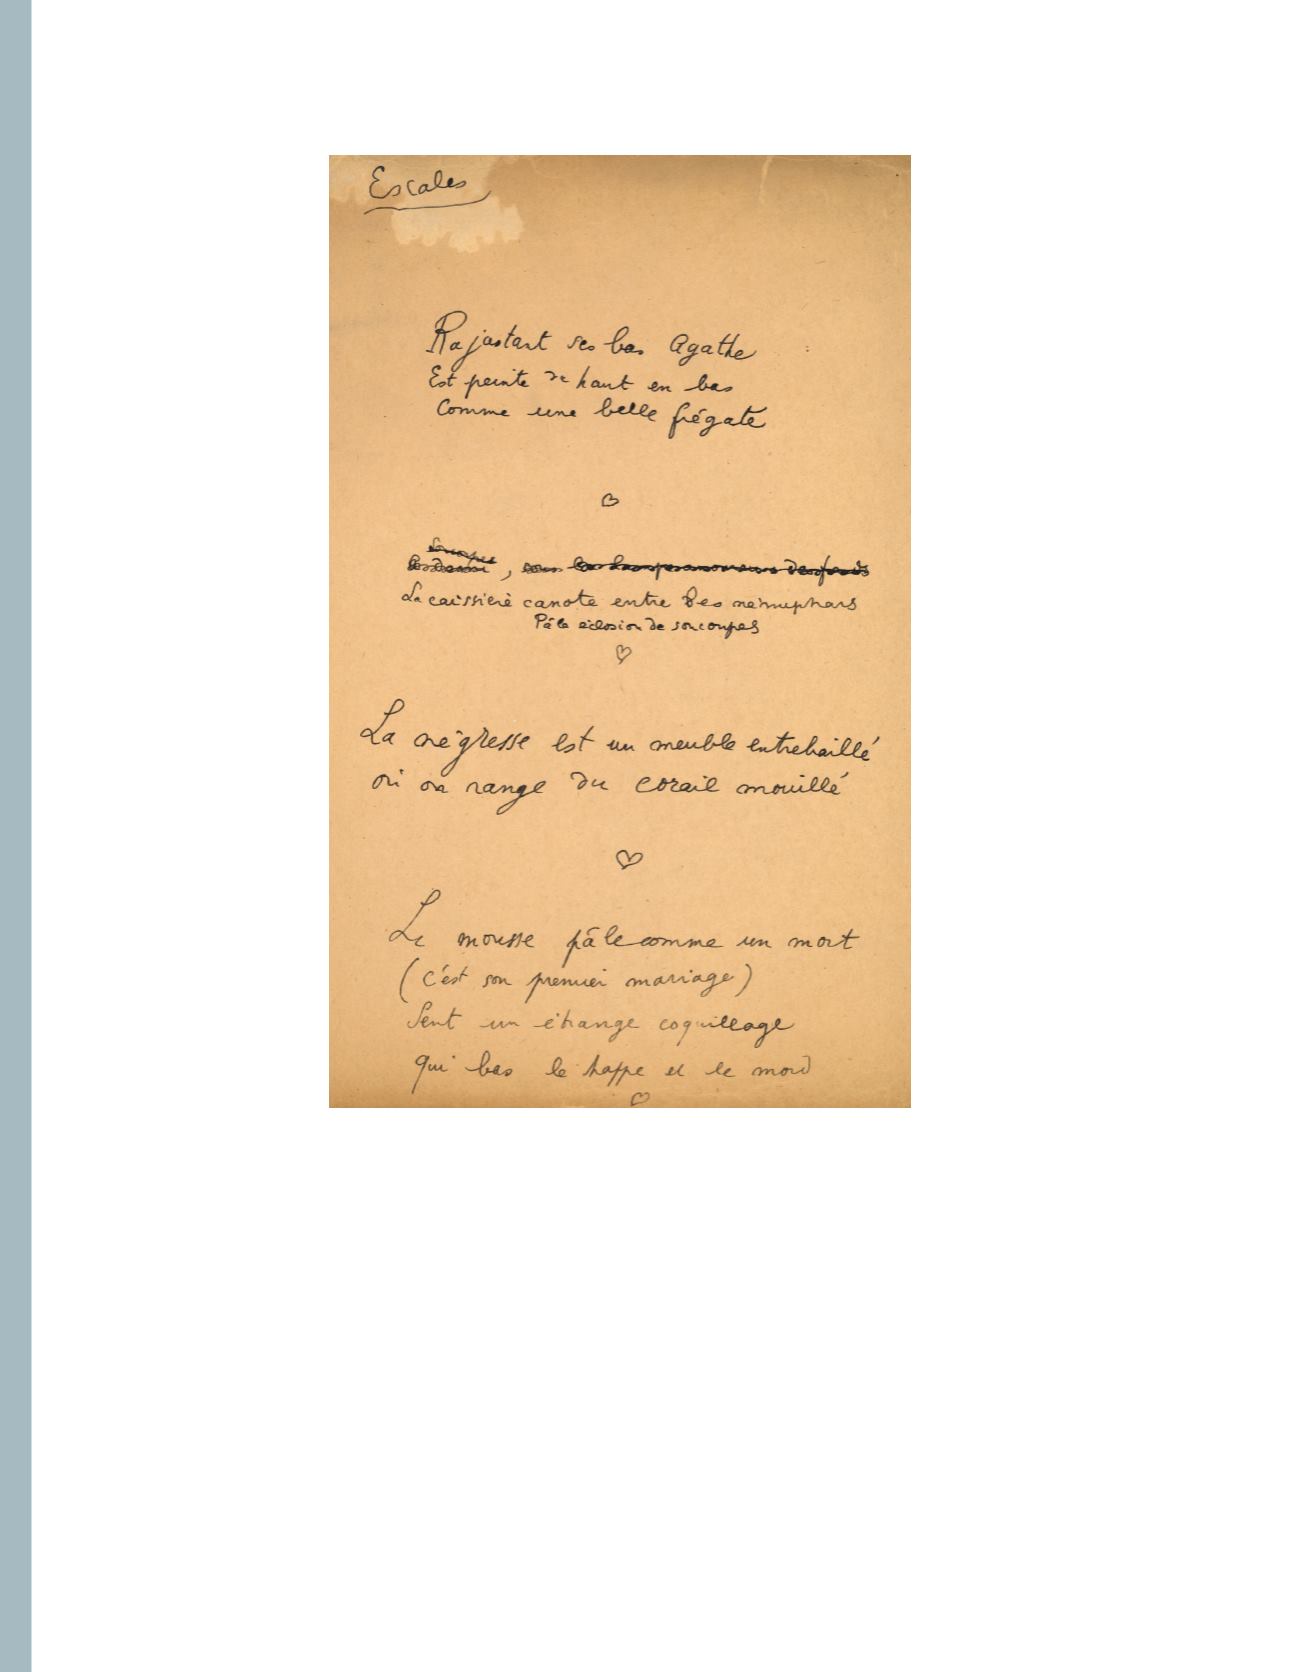 Escales
Rajustant ses bas Agathe
Est peinte de haut en bas
Comme une belle frégate
La caissière canote entre des nénuphars
Pâle éclosion de soucoupes
La négresse est un meuble entrebaillé
où on range du corail mouillé
Le mousse pâle comme un mort
(c'est son premier mariage)
Sent un étrange coquillage
qui bas le happe et le mord